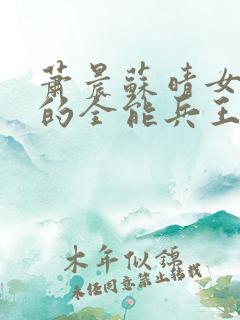 蕭晨蘇晴女
的全能兵王
木年似錦
未经同意禁止转载